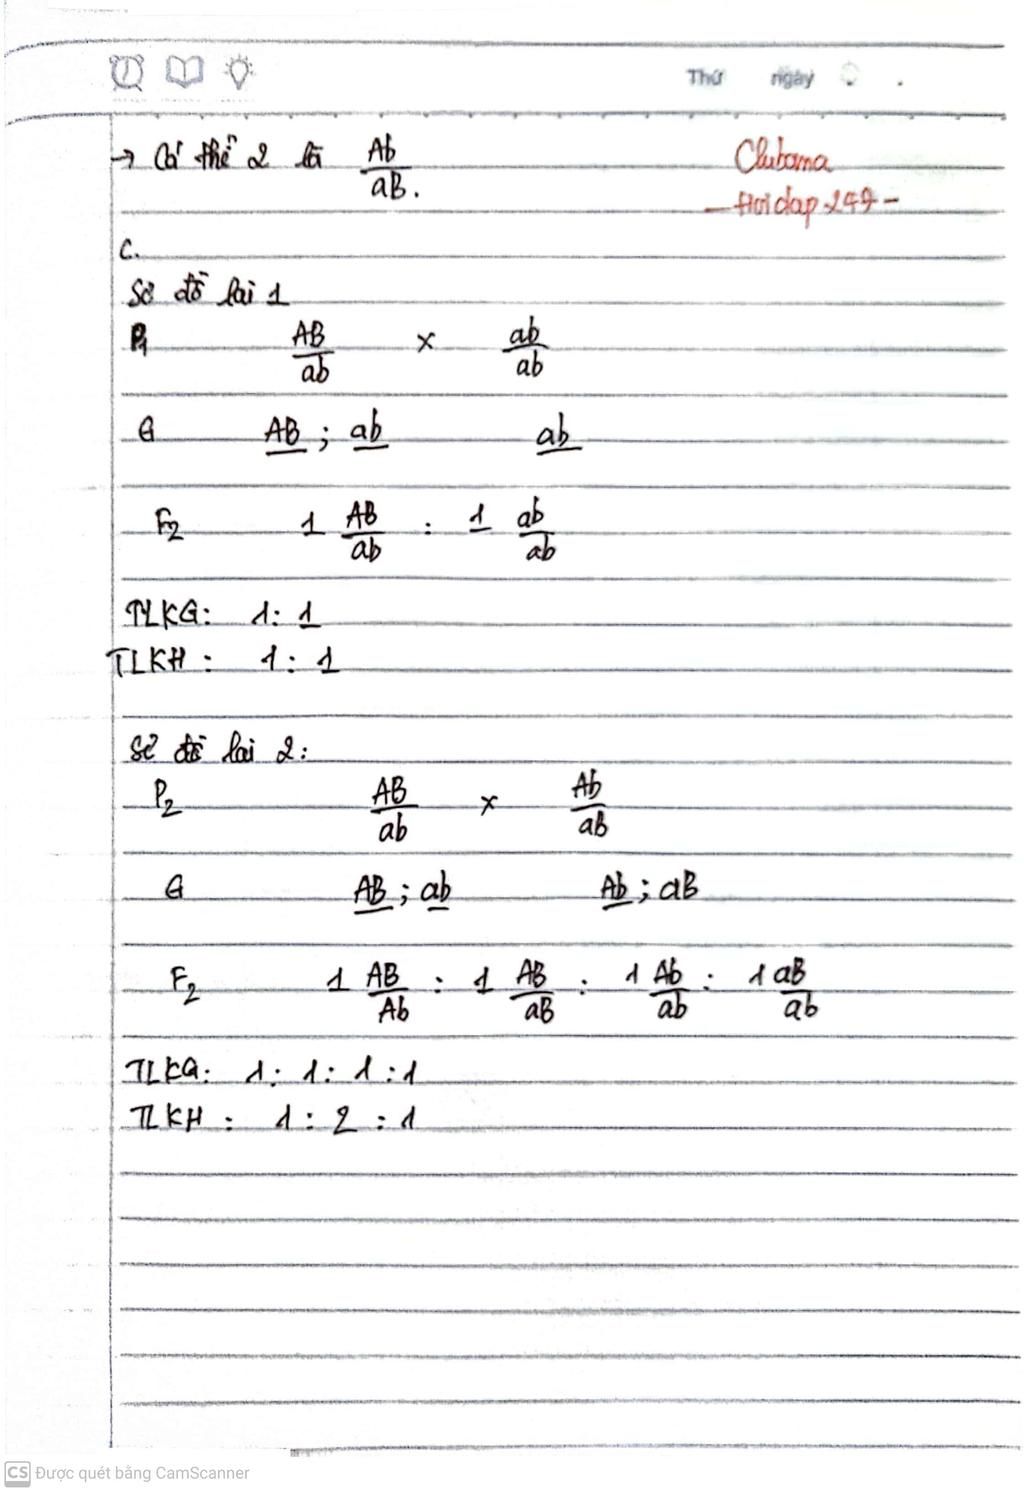 Thứ ngày
→ Cá thể 2 là Ab/aB.
Clubama
- Hoidap 247 -
C.
Sơ đồ lai 1
P1 AB/ab × ab/ab
G AB ; ab ab
F2 1 AB/ab : 1 ab/ab
TLKG: 1 : 1
TLKH : 1 : 1
Sơ đồ lai 2:
P2 AB/ab × Ab/aB
G AB ; ab Ab ; aB
F2 1 AB/Ab : 1 AB/aB : 1 Ab/ab : 1 aB/ab
TLKG: 1 : 1 : 1 : 1
TLKH : 1 : 2 : 1
CS Được quét bằng CamScanner